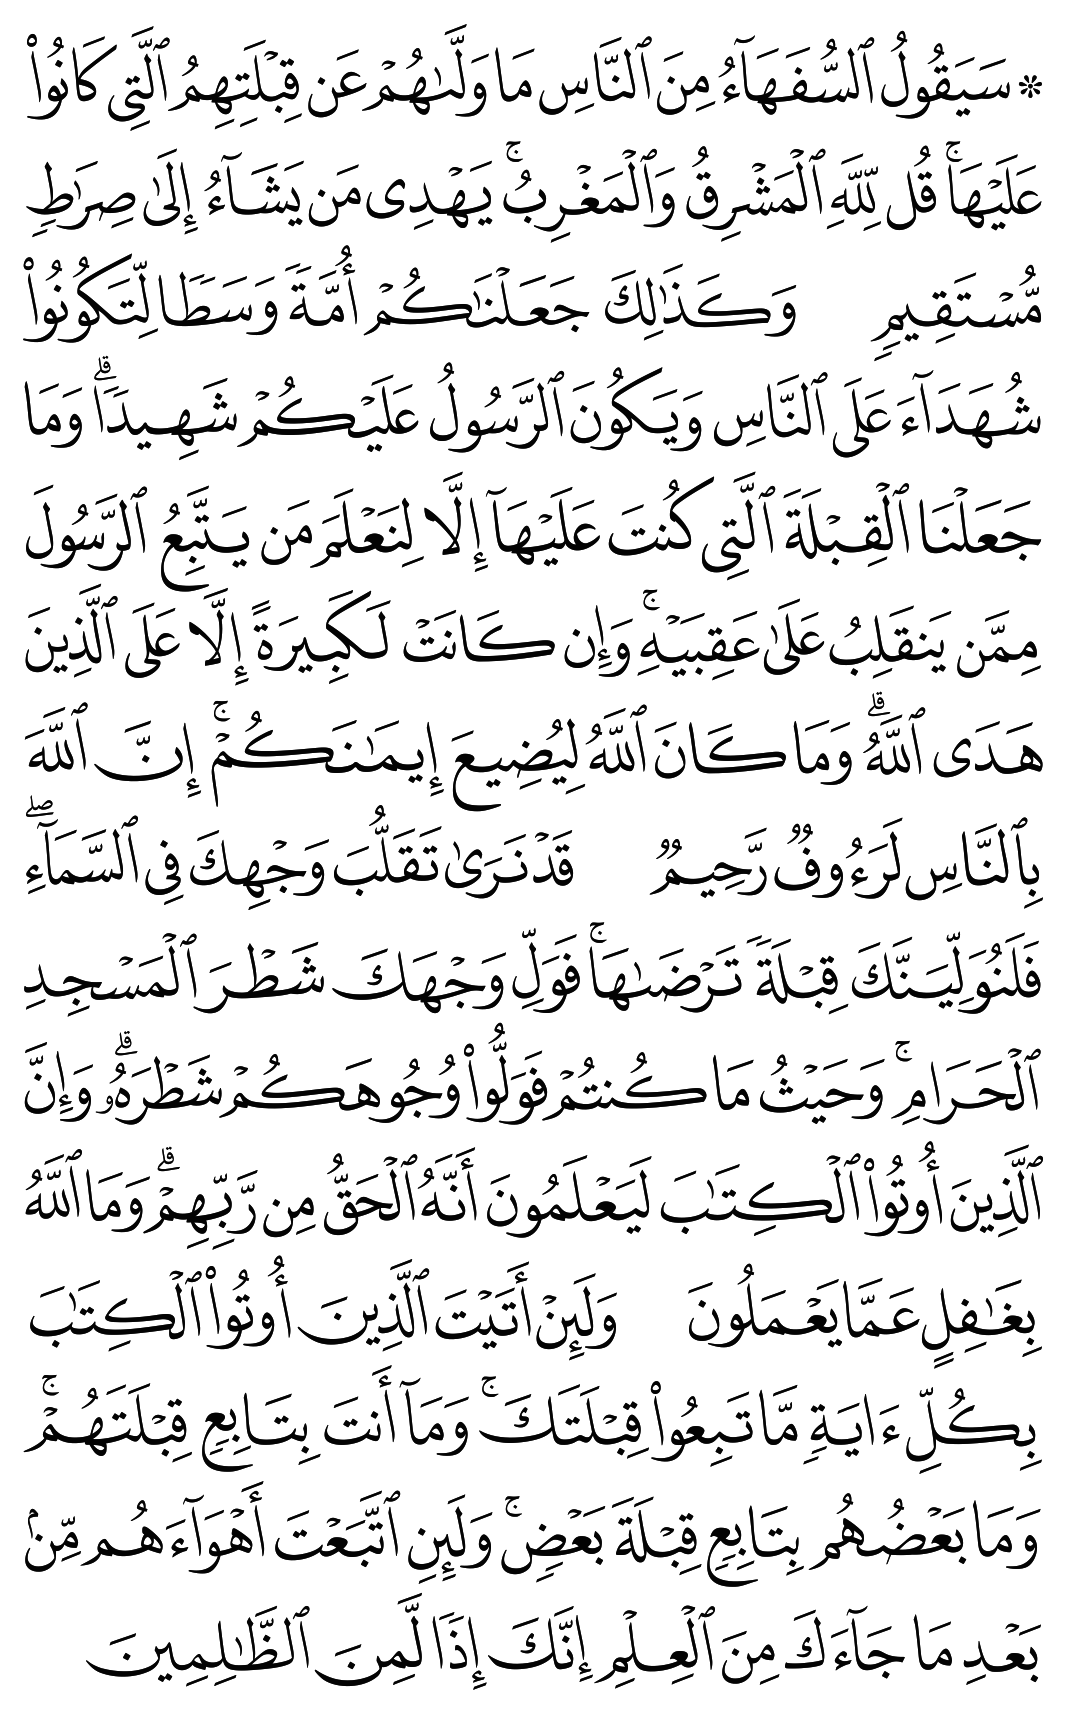 ۞ سَيَقُولُ ٱلسُّفَهَآءُ مِنَ ٱلنَّاسِ مَا وَلَّىٰهُمْ عَن قِبْلَتِهِمُ ٱلَّتِى كَانُوا۟
عَلَيْهَا ۚ قُل لِّلَّهِ ٱلْمَشْرِقُ وَٱلْمَغْرِبُ ۚ يَهْدِى مَن يَشَآءُ إِلَىٰ صِرَٰطٍ
مُّسْتَقِيمٍ وَكَذَٰلِكَ جَعَلْنَٰكُمْ أُمَّةً وَسَطًا لِّتَكُونُوا۟
شُهَدَآءَ عَلَى ٱلنَّاسِ وَيَكُونَ ٱلرَّسُولُ عَلَيْكُمْ شَهِيدًا ۗ وَمَا
جَعَلْنَا ٱلْقِبْلَةَ ٱلَّتِى كُنتَ عَلَيْهَآ إِلَّا لِنَعْلَمَ مَن يَتَّبِعُ ٱلرَّسُولَ
مِمَّن يَنقَلِبُ عَلَىٰ عَقِبَيْهِ ۚ وَإِن كَانَتْ لَكَبِيرَةً إِلَّا عَلَى ٱلَّذِينَ
هَدَى ٱللَّهُ ۗ وَمَا كَانَ ٱللَّهُ لِيُضِيعَ إِيمَٰنَكُمْ ۚ إِنَّ ٱللَّهَ
بِٱلنَّاسِ لَرَءُوفٌ رَّحِيمٌ قَدْ نَرَىٰ تَقَلُّبَ وَجْهِكَ فِى ٱلسَّمَآءِ ۖ
فَلَنُوَلِّيَنَّكَ قِبْلَةً تَرْضَىٰهَا ۚ فَوَلِّ وَجْهَكَ شَطْرَ ٱلْمَسْجِدِ
ٱلْحَرَامِ ۚ وَحَيْثُ مَا كُنتُمْ فَوَلُّوا۟ وُجُوهَكُمْ شَطْرَهُۥ ۗ وَإِنَّ
ٱلَّذِينَ أُوتُوا۟ ٱلْكِتَٰبَ لَيَعْلَمُونَ أَنَّهُ ٱلْحَقُّ مِن رَّبِّهِمْ ۗ وَمَا ٱللَّهُ
بِغَٰفِلٍ عَمَّا يَعْمَلُونَ وَلَئِنْ أَتَيْتَ ٱلَّذِينَ أُوتُوا۟ ٱلْكِتَٰبَ
بِكُلِّ ءَايَةٍ مَّا تَبِعُوا۟ قِبْلَتَكَ ۚ وَمَآ أَنتَ بِتَابِعٍ قِبْلَتَهُمْ ۚ
وَمَا بَعْضُهُم بِتَابِعٍ قِبْلَةَ بَعْضٍ ۚ وَلَئِنِ ٱتَّبَعْتَ أَهْوَآءَهُم مِّنۢ
بَعْدِ مَا جَآءَكَ مِنَ ٱلْعِلْمِ إِنَّكَ إِذًا لَّمِنَ ٱلظَّٰلِمِينَ